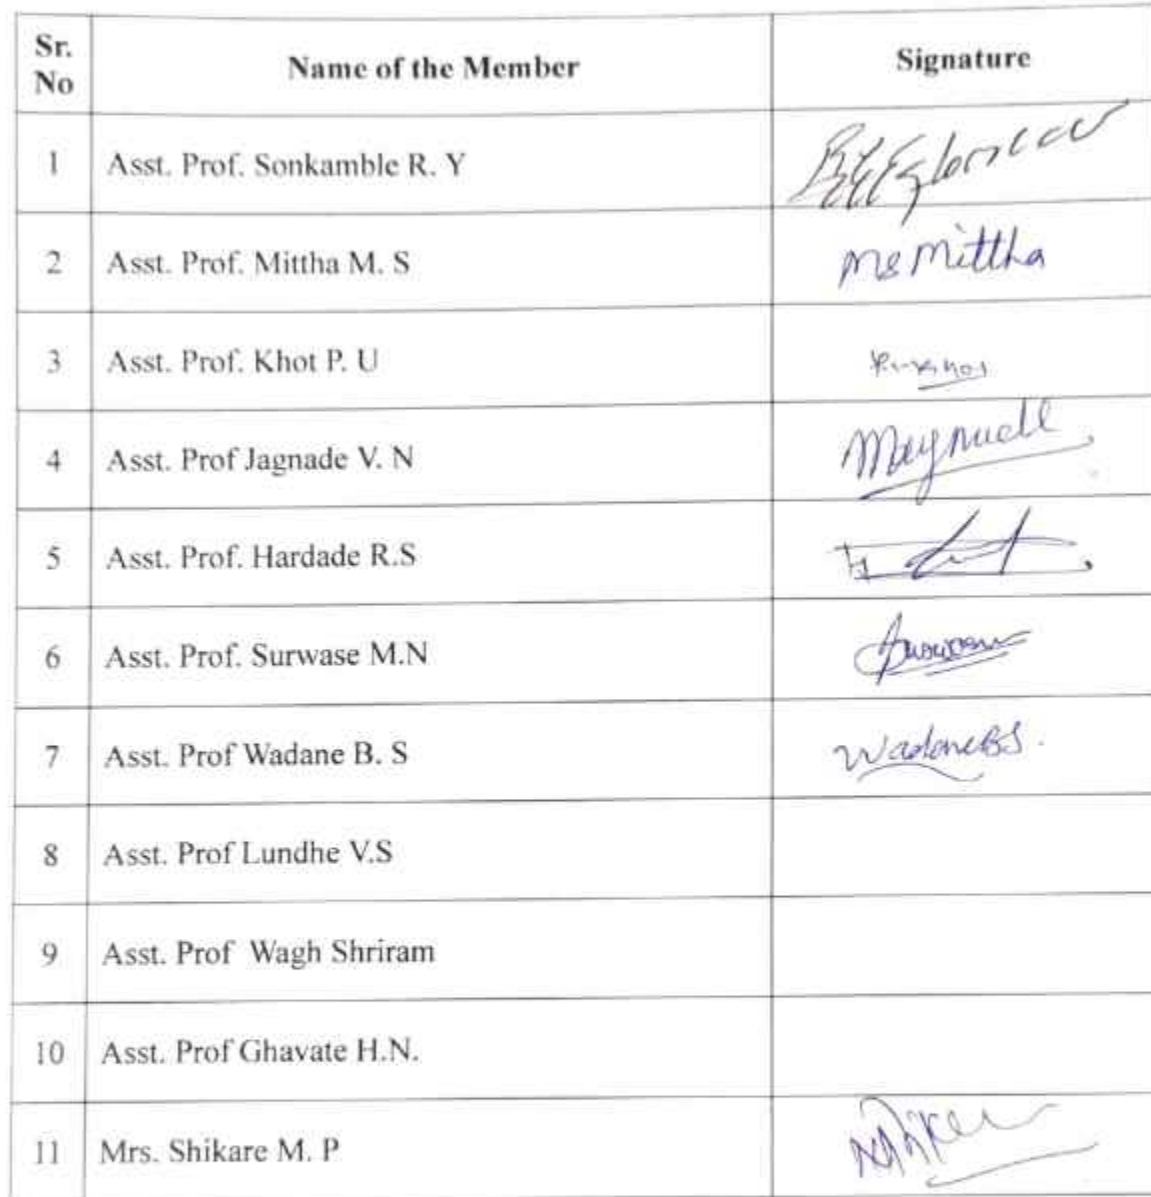 Sr.
No
Name of the Member
Signature
1 Asst. Prof. Sonkamble R. Y
2 Asst. Prof. Mittha M. S MSMittha
3 Asst. Prof. Khot P. U
4 Asst. Prof Jagnade V. N
5 Asst. Prof. Hardade R.S
6 Asst. Prof. Surwase M.N
7 Asst. Prof Wadane B. S WadaneBS.
8 Asst. Prof Lundhe V.S
9 Asst. Prof Wagh Shriram
10 Asst. Prof Ghavate H.N.
11 Mrs. Shikare M. P